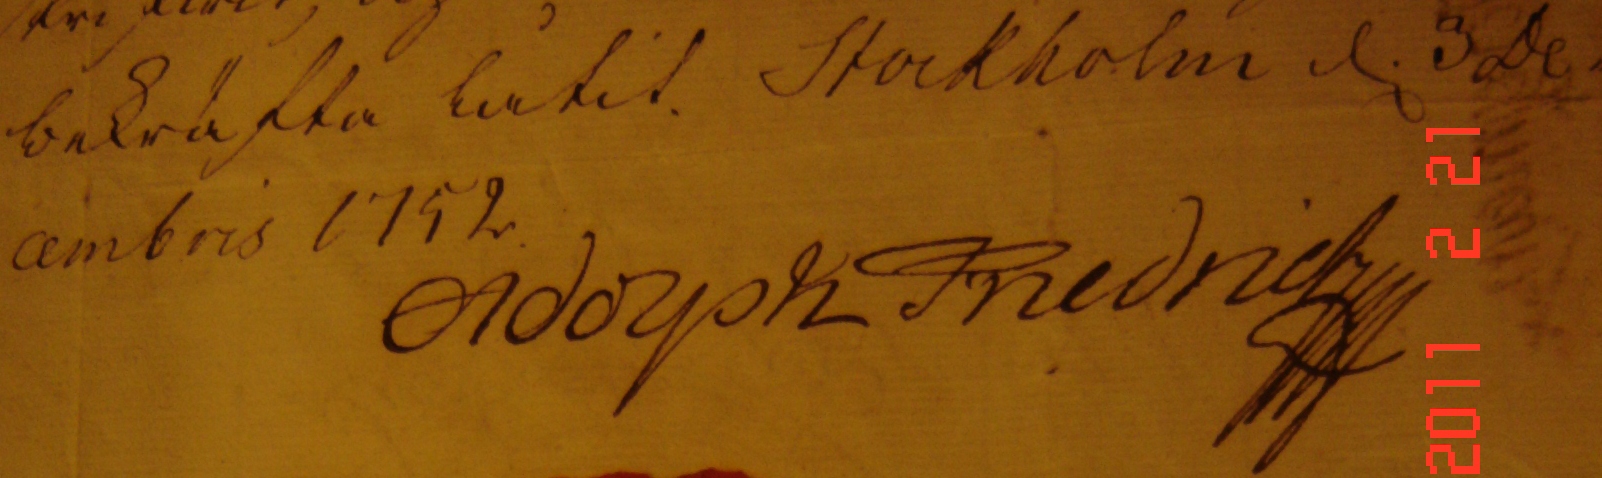 bekräfta låtit. Stockholm d. 3 De
cembris 1752.
Adolph Friedrich
2011 2 21